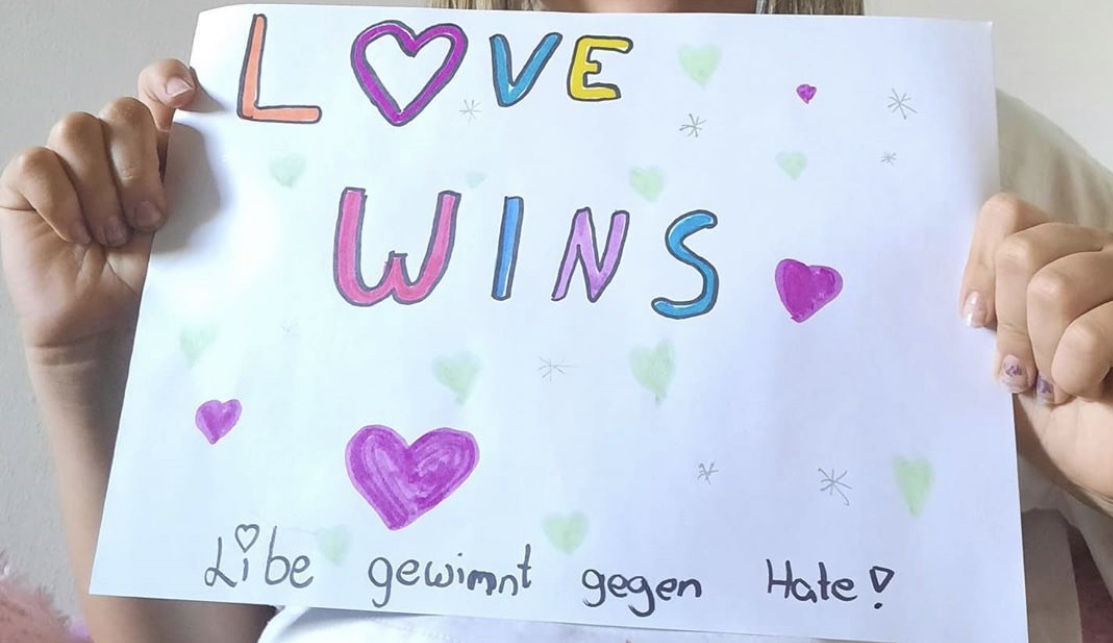 LOVE
WINS
Libe gewinnt gegen Hate!